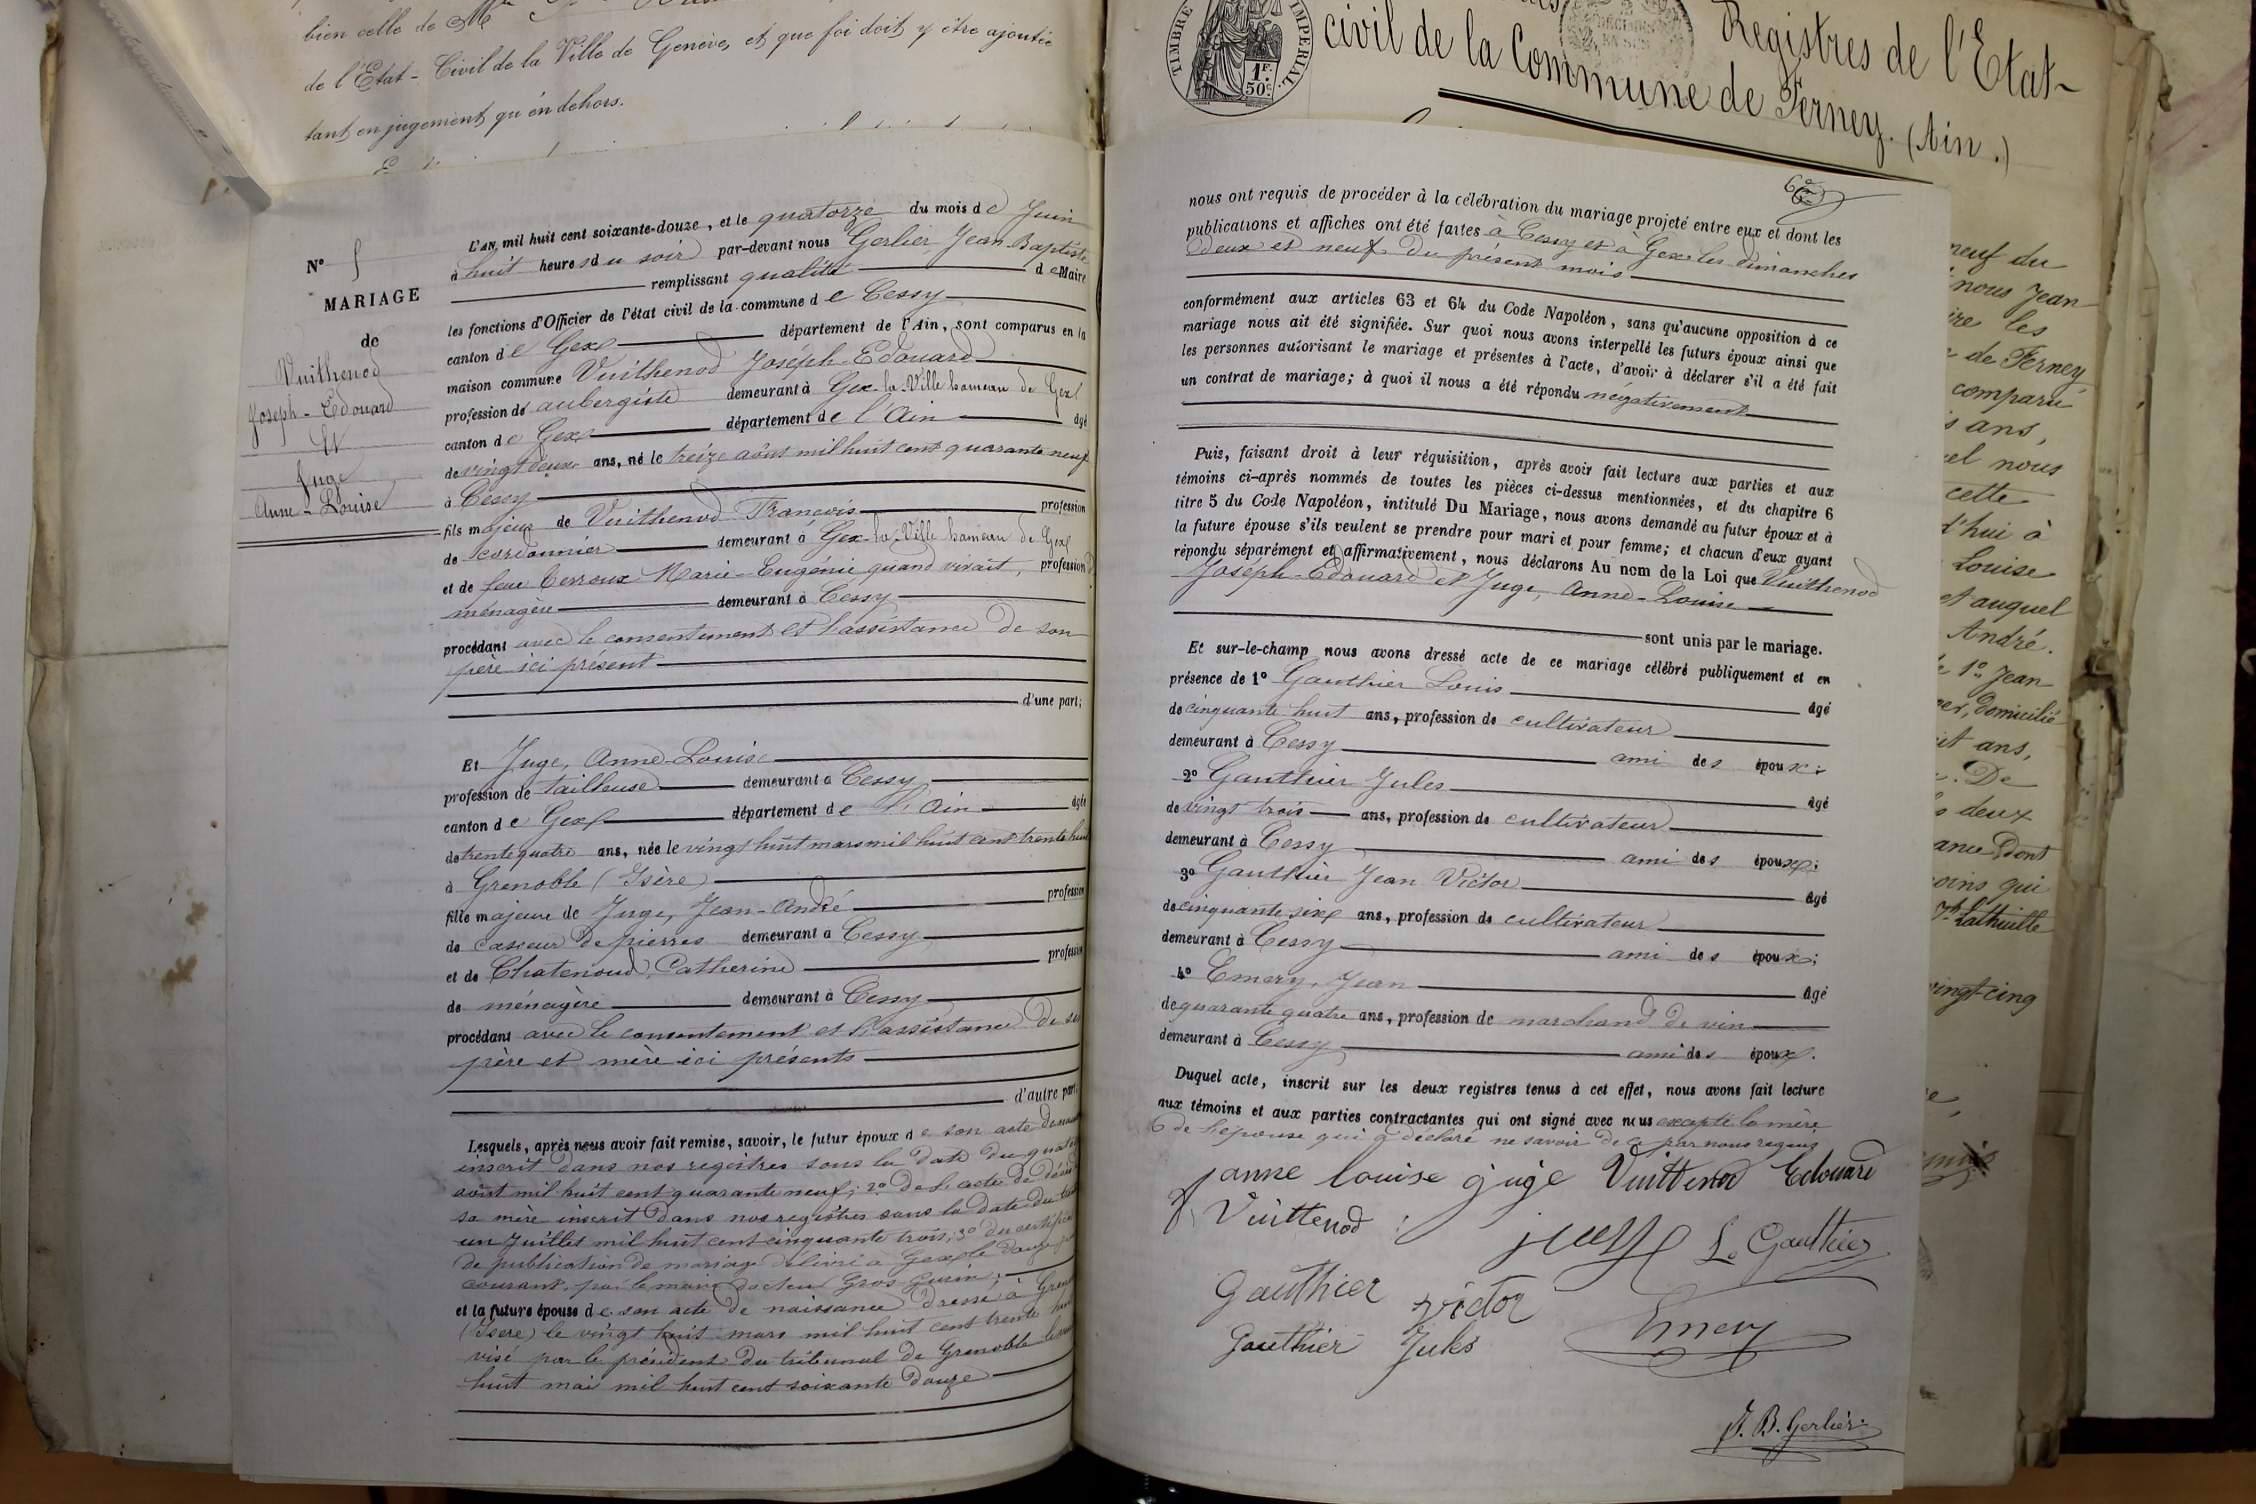 bien celle de Mr
de l'Etat-Civil de la Ville de Genève, et que foi doit y être ajoutée
tant en jugement qu'en dehors.
TIMBRE IMPERIAL.
1F. 50c
Registres de l'Etat-
civil de la Commune de Ferney. (Ain.)
N°
MARIAGE
de
Vuithenod
Joseph-Edouard
Et
Juge
Anne-Louise
L'AN mil huit cent soixante-douze, et le quatorze du mois de Juin
à huit heures du soir par-devant nous Gerlier, Jean Baptiste
remplissant qualité de Maire
les fonctions d'Officier de l'état civil de la commune de Cessy
canton de Gex département de l'Ain, sont comparus en la
maison commune Vuithenod Joseph-Edouard
profession de aubergiste demeurant à Gex-la-Ville hameau de Gex
canton de Gex département de l'Ain âgé
de vingt deux ans, né le treize août mil huit cent quarante neuf
à Cessy
fils majeur de Vuithenod François profession
de cordonnier demeurant à Gex-la-Ville hameau de Gex
et de feue Terroux Marie-Eugénie quand vivait, profession
ménagère demeurant à Cessy
procédant avec le consentement et l'assistance de son
père ici présent
d'une part;
Et Juge, Anne-Louise
profession de tailleuse demeurant à Cessy
canton de Gex département de l'Ain âgée
de trente quatre ans, née le vingt huit mars mil huit cent trente huit
à Grenoble (Isère)
fille majeure de Juge, Jean-André profession
de casseur de pierres demeurant à Cessy
et de Chatenoud, Catherine profession
de ménagère demeurant à Cessy
procédant avec le consentement et l'assistance de ses
père et mère ici présents
d'autre part;
Lesquels, après nous avoir fait remise, savoir, le futur époux de son acte de
inscrit dans nos registres sous la date du
août mil huit cent quarante neuf; 2° de l'acte de décès
sa mère inscrit dans nos registres sous la date du
un Juillet mil huit cent cinquante trois; 3° du certificat
de publication de mariage délivré à Gex le douze
courant, par le maire docteur Gros Gurin;
et la future épouse de son acte de naissance dressé à
(Isère) le vingt huit mars mil huit cent trente
visé par le président du tribunal de Grenoble
huit mai mil huit cent soixante douze
nous ont requis de procéder à la célébration du mariage projeté entre eux et dont les
publications et affiches ont été faites à Cessy et à Gex les dimanches
deux et neuf du présent mois
conformément aux articles 63 et 64 du Code Napoléon, sans qu'aucune opposition à ce
mariage nous ait été signifiée. Sur quoi nous avons interpellé les futurs époux ainsi que
les personnes autorisant le mariage et présentes à l'acte, d'avoir à déclarer s'il a été fait
un contrat de mariage; à quoi il nous a été répondu négativement
Puis, faisant droit à leur réquisition, après avoir fait lecture aux parties et aux
témoins ci-après nommés de toutes les pièces ci-dessus mentionnées, et du chapitre 6
titre 5 du Code Napoléon, intitulé Du Mariage, nous avons demandé au futur époux et à
la future épouse s'ils veulent se prendre pour mari et pour femme; et chacun d'eux ayant
répondu séparément et affirmativement, nous déclarons Au nom de la Loi que Vuithenod
Joseph-Edouard et Juge, Anne-Louise
sont unis par le mariage.
Et sur-le-champ nous avons dressé acte de ce mariage célébré publiquement et en
présence de 1° Gauthier Louis âgé
de cinquante huit ans, profession de cultivateur
demeurant à Cessy ami des époux;
2° Gauthier Jules âgé
de vingt trois ans, profession de cultivateur
demeurant à Cessy ami des époux;
3° Gauthier Jean Victor âgé
de cinquante six ans, profession de cultivateur
demeurant à Cessy ami des époux;
4° Emery, Jean âgé
de quarante quatre ans, profession de marchand de vin
demeurant à Cessy ami des époux.
Duquel acte, inscrit sur les deux registres tenus à cet effet, nous avons fait lecture
aux témoins et aux parties contractantes qui ont signé avec nous excepté la mère
de l'épouse qui a déclaré ne savoir de ce par nous requis
anne louise juge Vuittenod Edouard
Vuittenod juge L. Gauthier
Gauthier Victor
Gauthier Jules Emery
J. B. Gerlier
neuf du
nous Jean
ire les
de Ferney
comparu
ans,
nous
cette
d'hui à
Louise
et auquel
André.
1° Jean
domicilié
ans,
De
deux
dont
qui
Lathuille
vingt-cinq